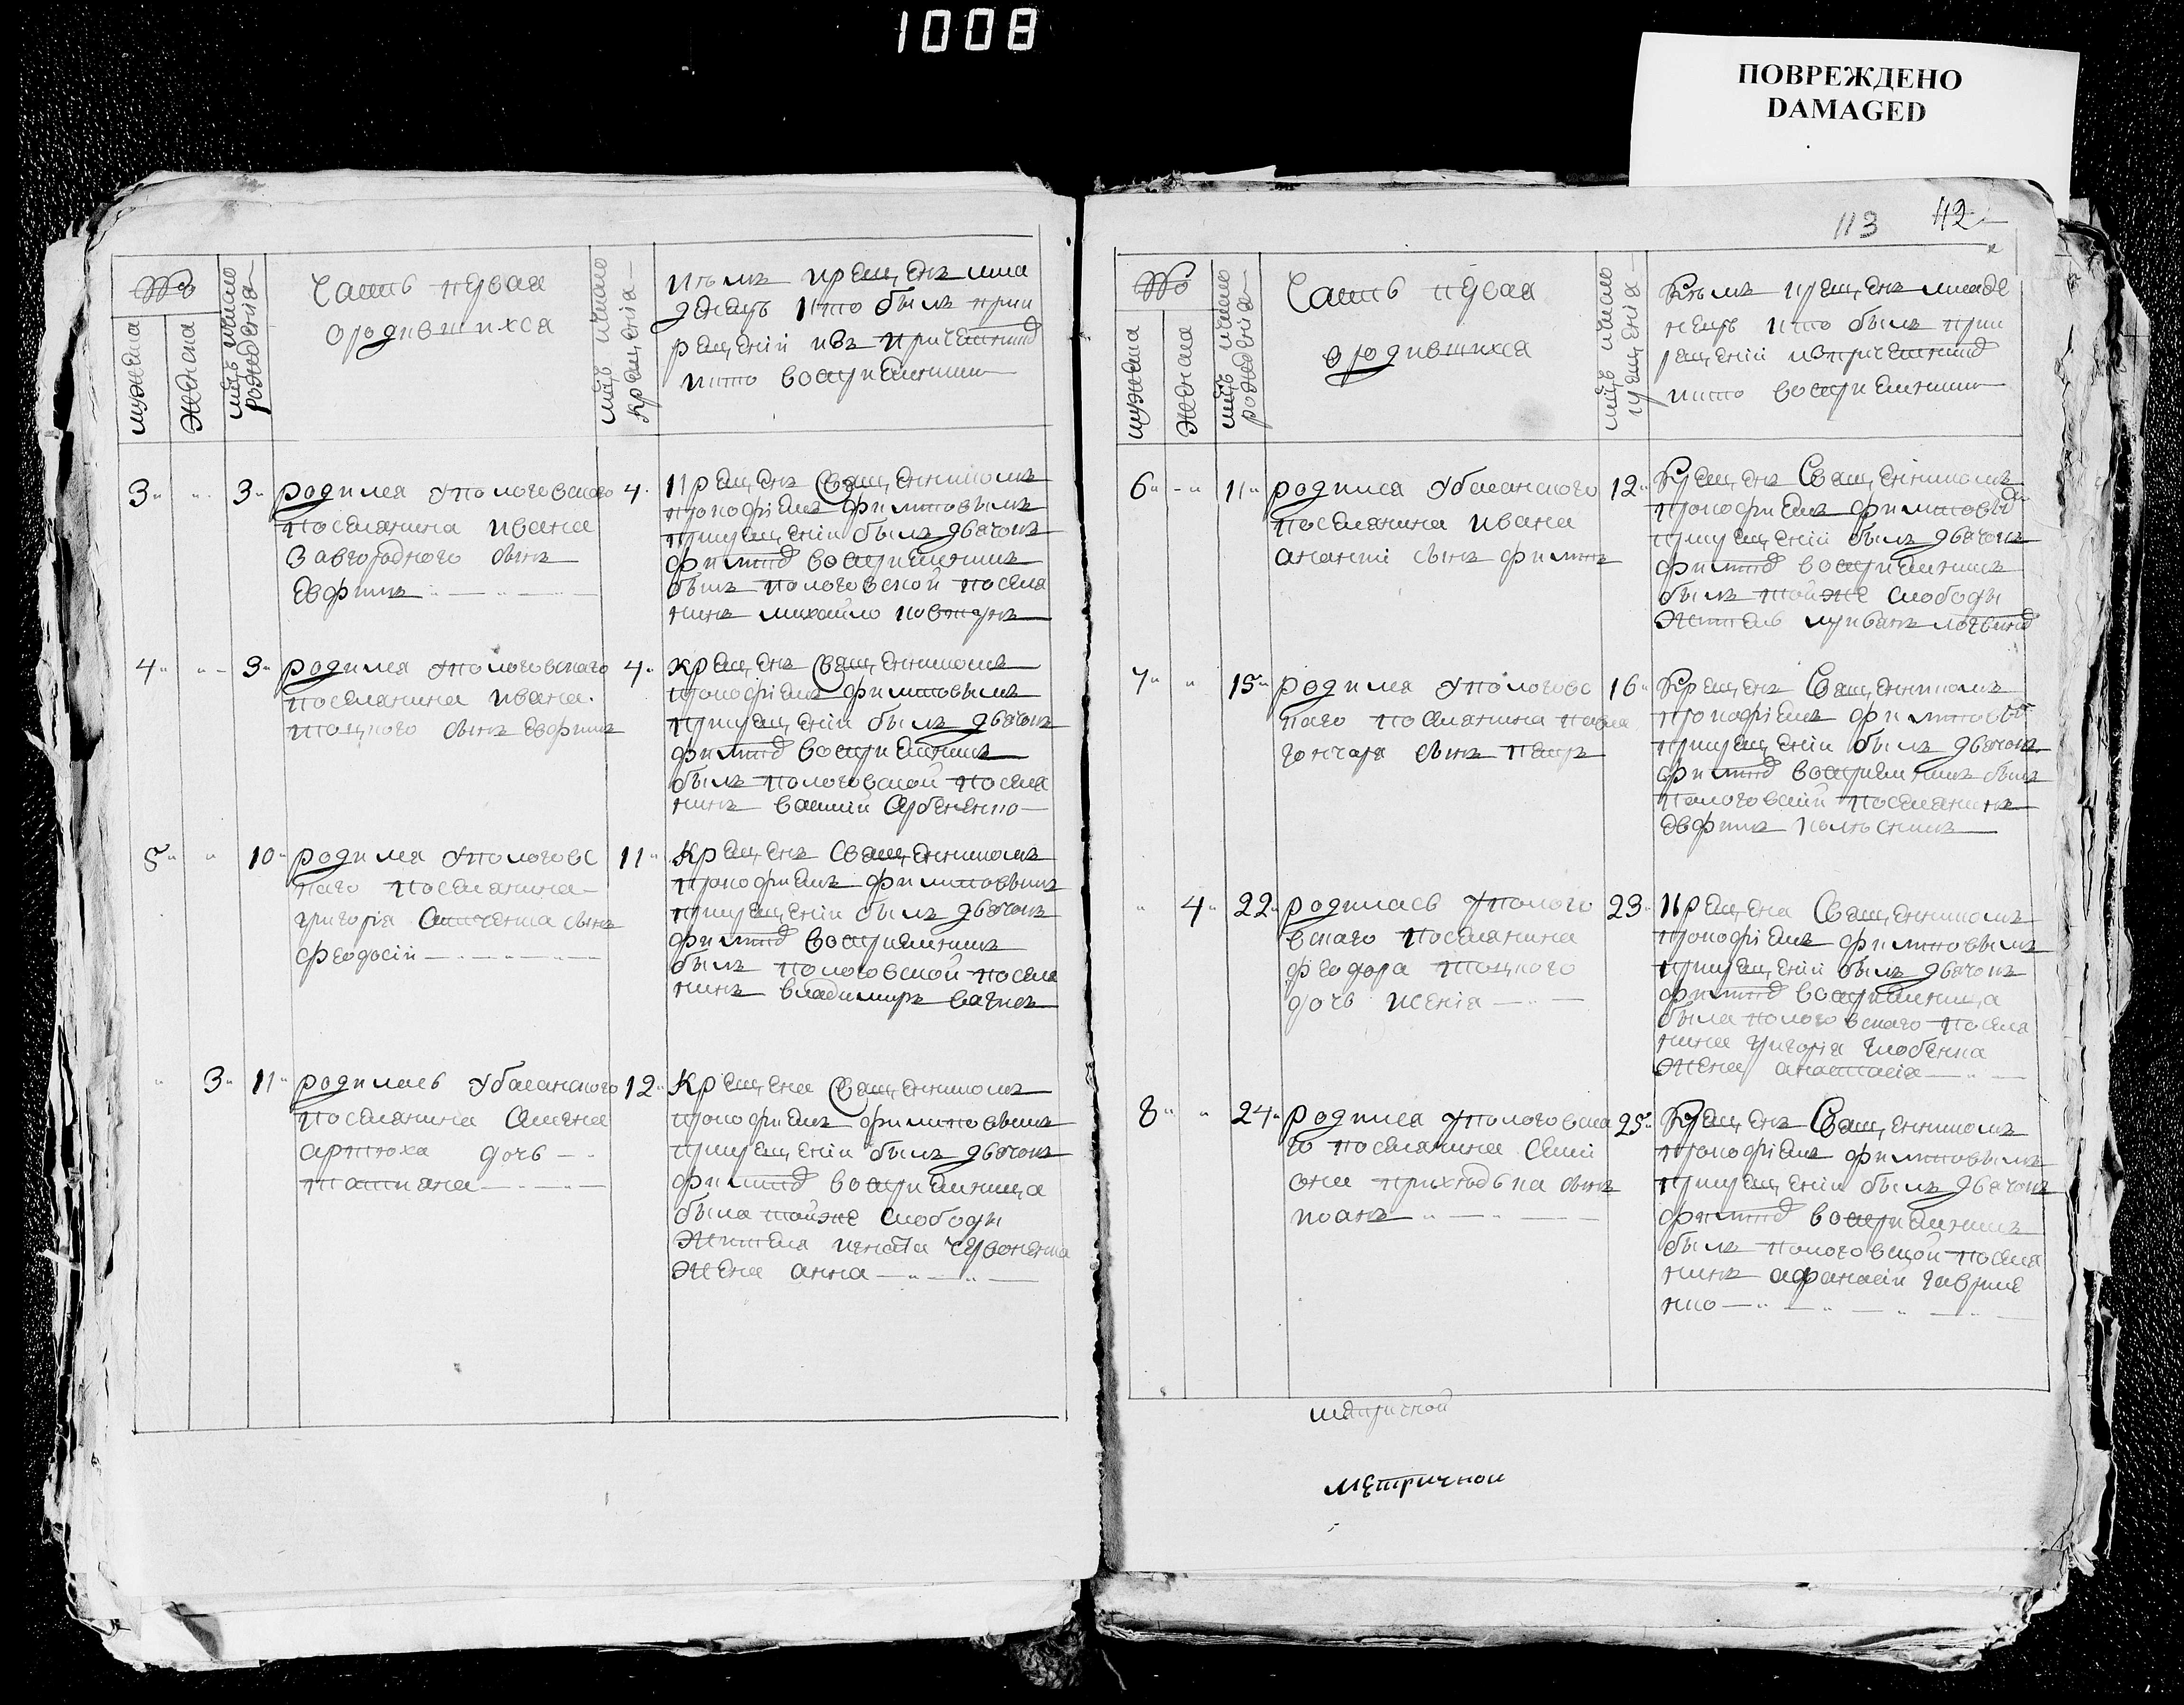 1008
ПОВРЕЖДЕНО
DAMAGED
113 112
№
мужеска
женска
рожденія
Часть первая
о родившихся
крещенія
кѣмъ крещенъ мла
денецъ и кто былъ при
крещеніи изъ причетник
и кто восприемники
3 3 родился у пологовскаго 4
поселянина ивана
Завгороднего сынъ
Евфимъ
Крещенъ Священникомъ
прокофіемъ филиповымъ
прикрещеніи былъ дьячокъ
филипъ восприемникъ
былъ пологовской поселя
нинъ михайло
4 3 родился у пологовскаго 4
поселянина ивана
тоцкого сынъ Евфимъ
Крещенъ Священникомъ
прокофіемъ филиповымъ
прикрещеніи былъ дьячокъ
филипъ восприемникъ
былъ пологовской поселя
нинъ василій
5 10 родился у пологовс 11
каго поселянина
григорія сынъ
феодосій
Крещенъ Священникомъ
прокофіемъ филиповымъ
прикрещеніи былъ дьячокъ
филипъ восприемникъ
былъ пологовской поселя
нинъ владимиръ
3 11 родилась у басанского 12
поселянина Семена
артюха дочь
татияна
Крещена Священникомъ
прокофіемъ филиповымъ
прикрещеніи былъ дьячокъ
филипъ восприемница
была тойже слободы
жителя игната червоненка
жена анна
№
мужеска
женска
рожденія
Часть первая
о родившихся
крещенія
Кѣмъ крещенъ младе
нецъ и кто былъ при
крещеніи изпричетник
и кто восприемники
6 11 родился у басанского 12
поселянина ивана
ананіи сынъ филипъ
Крещенъ Священникомъ
прокофиемъ филиповы
прикрещеніи былъ дьячокъ
филипъ восприемникъ
былъ тойже слободы
житель
7 15 родился у пологовс 16
каго поселянина павла
гончара сынъ петръ
Крещенъ Священникомъ
прокофіемъ филиповы
прикрещеніи былъ дьячокъ
филипъ восприемникъ былъ
пологовскій поселянинъ
Евфимъ
4 22 родилась у полого 23
вскаго поселянина
феодора тоцкого
дочь ксенія
Крещена Священникомъ
прокофіемъ филиповымъ
прикрещеніи былъ дьячокъ
филипъ восприемница
была пологовскаго поселя
нина григорія глобенка
жена анастасія
8 24 родился у пологовска 25
го поселянина Сими
она приходька сынъ
иоанъ
Крещенъ Священникомъ
прокофіемъ филиповымъ
прикрещеніи былъ дьячокъ
филипъ восприемникъ
былъ пологовской поселя
нинъ афанасій гавриле
нко
метричной
метричной